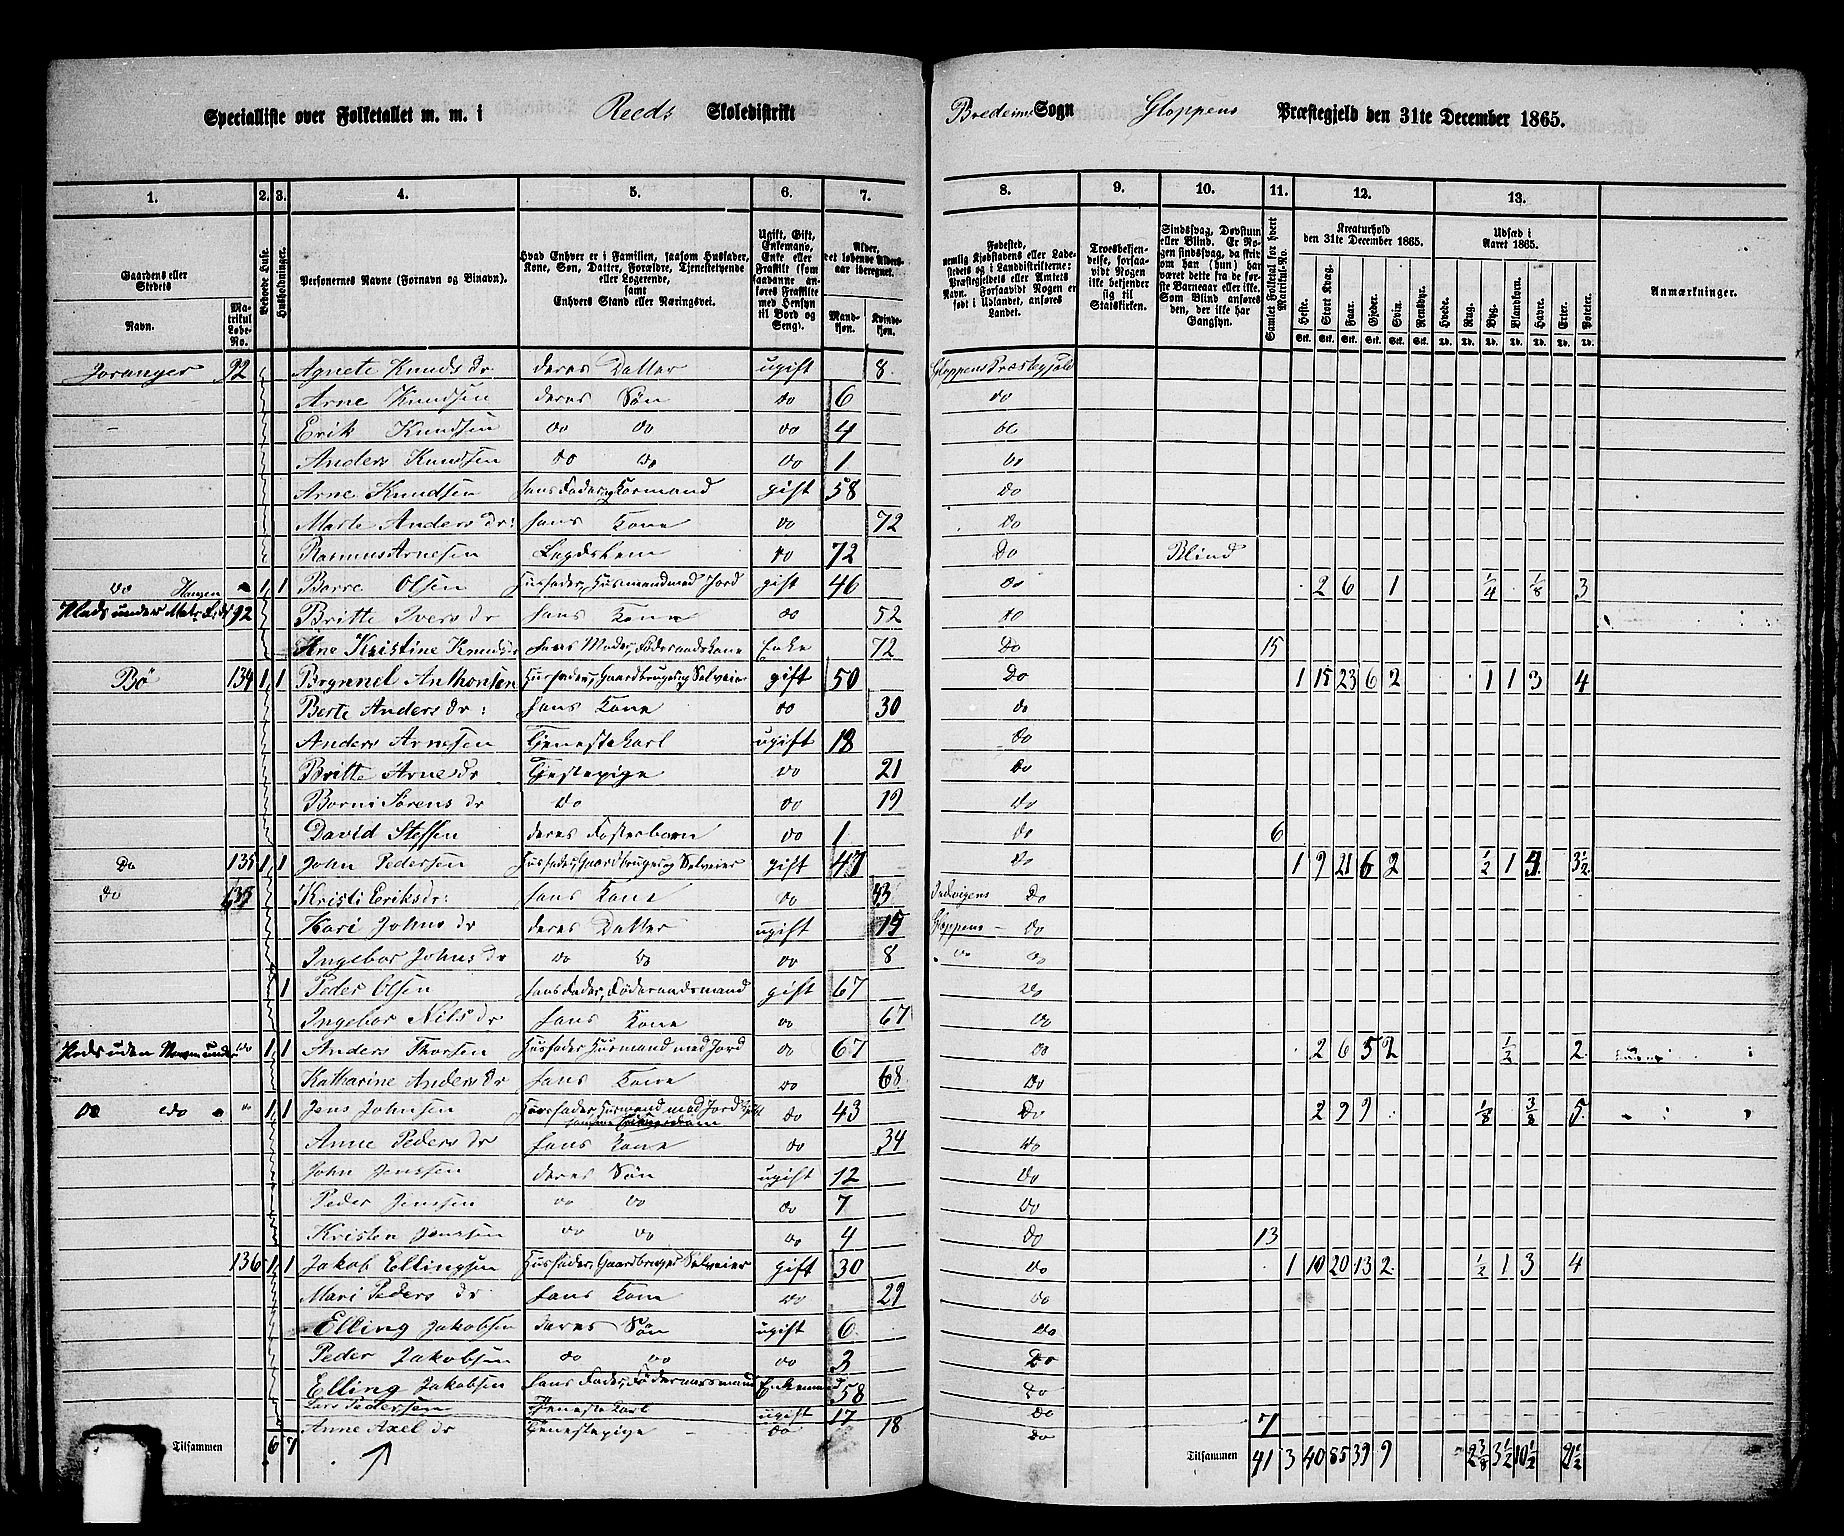 Specialliste over Folketallet m. m. i Reeds Skoledistrikt Bredeims Sogn Gloppens Præstegjeld den 31te December 1865.
1. 2. 3. 4. 5. 6. 7. 8. 9. 10. 11. 12. 13.
Gaardens eller Stedets
Navn.
Matrikul Løbe-No.
Beboede Huse.
Husholdninger.
Personernes Navne (Fornavn og Binavn).
Hvad Enhver er i Familien, saasom Husfader, Kone, Søn, Datter, Forældre, Tjenestetyende eller Logerende, samt Enhvers Stand eller Næringsvei.
Ugift, Gift, Enkemand, Enke eller Fraskilt (som saadanne anføres Fraskilte med Hensyn til Bord og Seng).
Alder, det løbende Alders-aar iberegnet.
Mand-kjøn. Kvinde-kjøn.
Fødested, nemlig Kjøbstadens eller Ladestedets og i Landdistrikterne: Præstegjeldets eller Amtets Navn. Forsaavidt Nogen er født i Udlandet, anføres Landet.
Troesbekjendelse, forsaavidt Nogen ikke bekjender sig til Statskirken.
Sindssvag, Døvstum eller Blind. Er Nogen sindssvag, da skriv om han (hun) har været dette fra de første Barneaar eller ikke. Som Blind anføres der, der ikke har Gangsyn.
Samlet Folketal for hvert Matrikul-No.
Kreaturhold den 31te December 1865.
Heste. Stort Kvæg. Faar. Gjeder. Svin. Rensdyr.
Udsæd i Aaret 1865.
Hvede. Rug. Byg. Blandkorn. Havre. Erter. Poteter.
Anmærkninger.
Joranger 92 Agnete Knuds dr deres Datter ugift 8 Gloppens Præstegjeld
Arne Knudsen deres Søn do 6 do
Erik Knudsen do do do 4 do
Anders Knudsen do do do 1 do
Arne Knudsen hans Fader, gift 58 do
Marte Anders dr: hans Kone do 72 do
Rasmus Arnesen Lægdslem do 72 Do Blind
do Haugen 1 1 Børre Olsen Husfader, Husmand med Jord gift 46 do 2 6 1 1/4 1/8 3
Plads under Matr 92 Britte Ivers dr hans Kone do 52 do
Ane Kristine Knudsdr hans Moder, Føderaadskone Enke 72 Do 15
Bø 134 1 1 Brynnel Anthonsen Husfader, Gaardbruger og Selveier gift 50 Do 1 15 23 6 2 1 1 3 4
Berte Anders dr: hans Kone do 30 do
Anders Arnesen Tjenestekarl ugift 18 do
Britte Arne dr Tjestepige do 21 Do
Borni Sørens dr do do 19 do
David Steffen deres Fosterbarn do 1 do 6
Do 135 1 1 John Pedersen Husfader, Gaardbruger og Selveier gift 47 do 1 9 21 6 2 1/2 1 3 3 1/2
do Kristi Eriks dr: hans Kone 43 Indvigens Do
Kari Johns dr deres Datter ugift 15 Gloppens - do
Ingebor Johns dr do do do 8 do do
1 Peder Olsen hans Fader, Føderaadsmand gift 67 do
Ingebor Nils dr hans Kone do 67 do
Plads uden Navn under do 1 1 Anders Thorsen Husfader Husmand med Jord do 67 do 2 6 5 2 1/2 2
Katharine Anders dr hans Kone do 68 Do
do do do 1 1 Jens Johnsen Husfader, Husmand med Jord do 43 Do 2 9 9 1/8 3/8 5
Anne Peders dr hans Kone do 34 Do
John Jenssen deres Søn ugift 12 do
Peder Jenssen do do do 7 do
Kristen Jenssen do do do 4 do 13
136 1 1 Jakob Ellingsen Husfader, Gaardbruger Selveier gift 30 do 1 10 20 13 2 1/2 1 3 4
Mari Peders dr hans Kone do 29 do
Elling Jakobsen deres Søn ugift 6 do
Peder Jakobsen do do do 3 Do
Elling Jakobsen hans Fader, Føderaadsmand Enkemand 58 do
Lars Pedersen Tjenestekarl ugift 17 do
Anne Axel dr Tjenestepige do 18 do 7
Tilsammen 6 7 Tilsammen 41 3 40 85 39 9 2 3/8 3 1/2 10 1/2 21 1/2